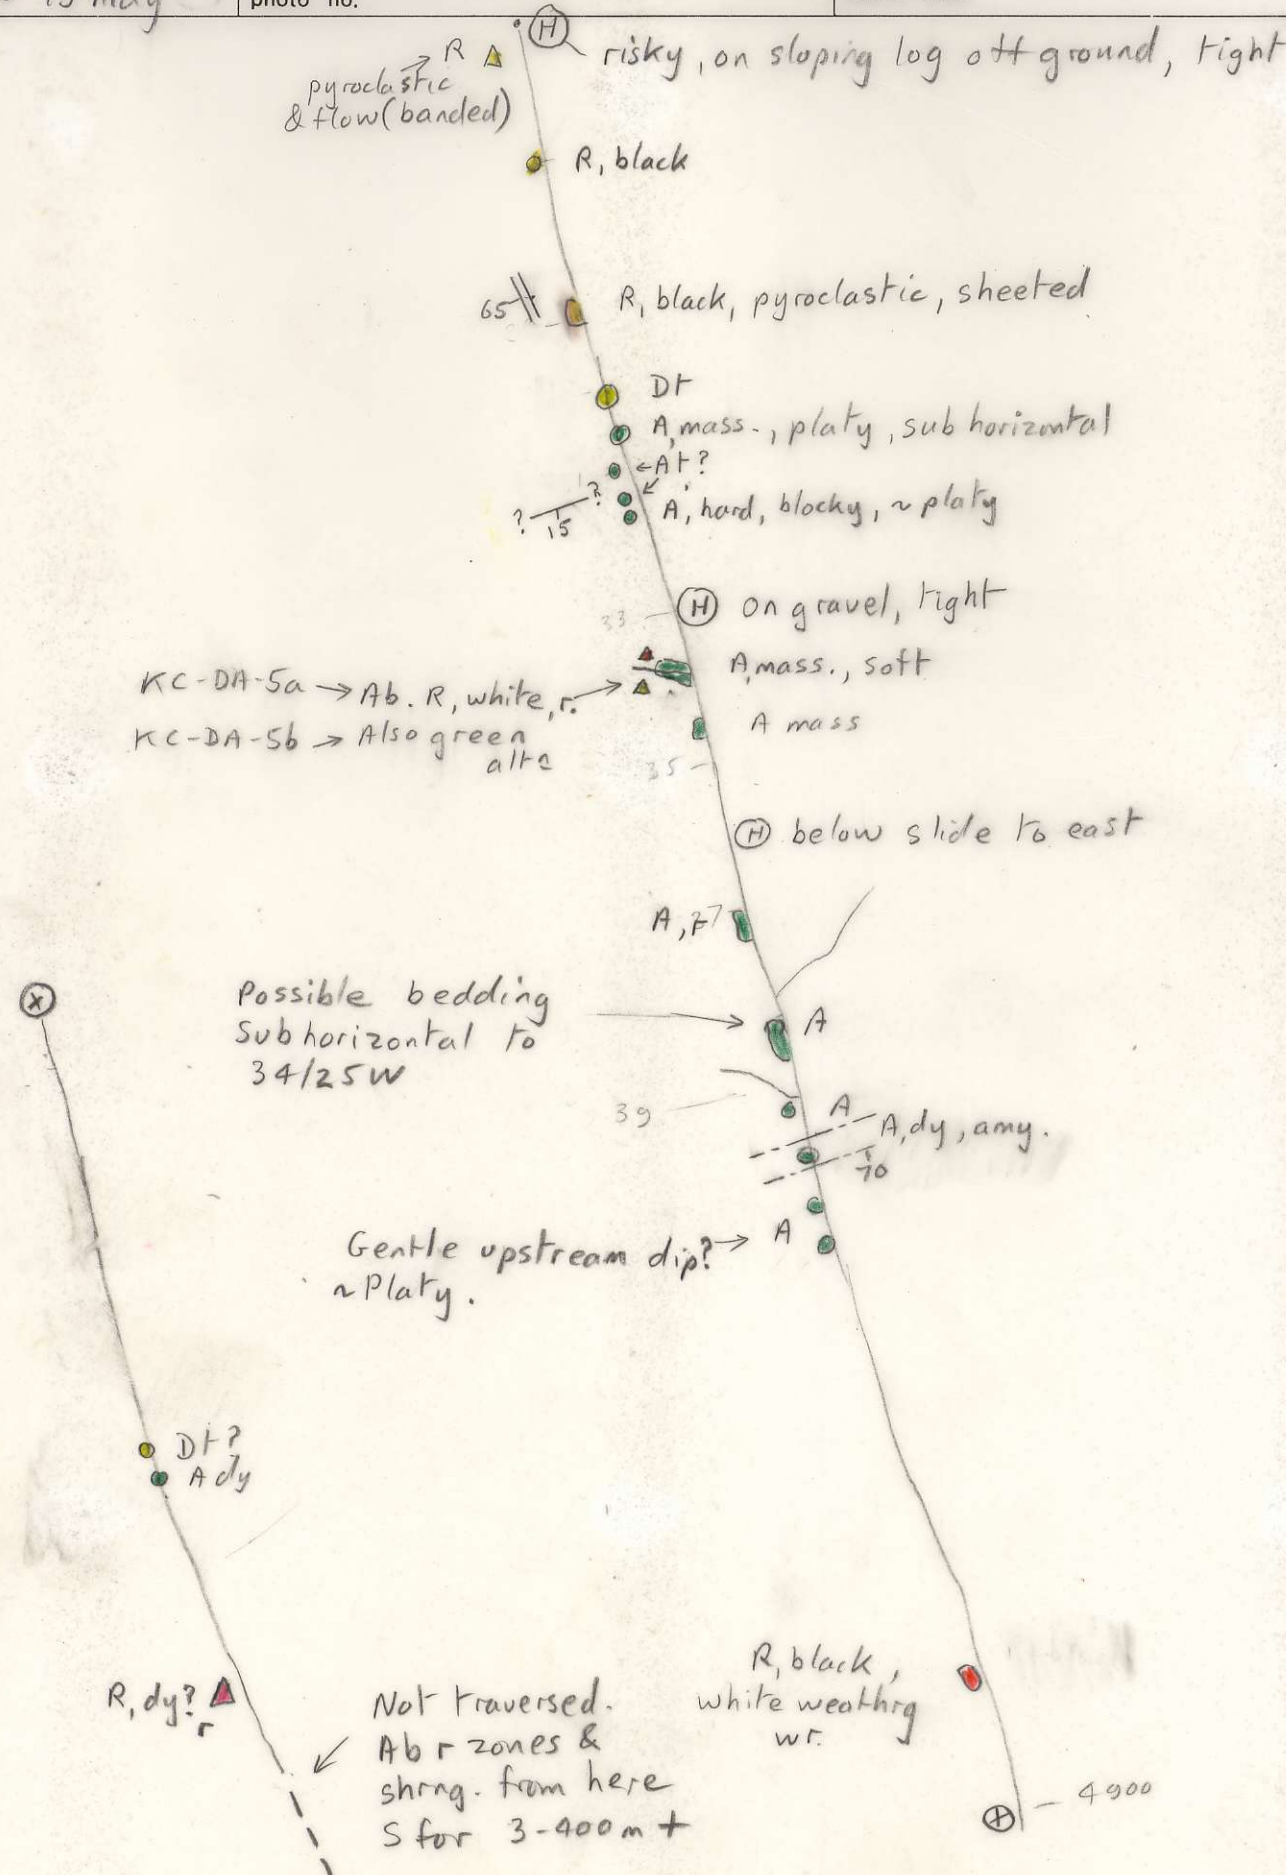 15 May
photo no.
H risky, on sloping log off ground, tight
R
pyroclastic
& flow (banded)
R, black
65
R, black, pyroclastic, sheeted
Dt
A, mass., platy, subhorizontal
←At?
? ?
15
A, hard, blocky, ~platy
33
H on gravel, tight
A, mass., soft
KC-DA-5a → Ab. R, white, r.
KC-DA-5b → Also green
altn
A mass
35
H below slide to east
A,
X
Possible bedding
Subhorizontal to
34/25W
A
39
A
A, dy, amy.
70
Gentle upstream dip? → A
~Platy.
Dt?
A dy
R, dy?
r
Not traversed.
Ab r zones &
shrng. from here
S for 3-400m +
R, black,
white weathrg
wr.
4900